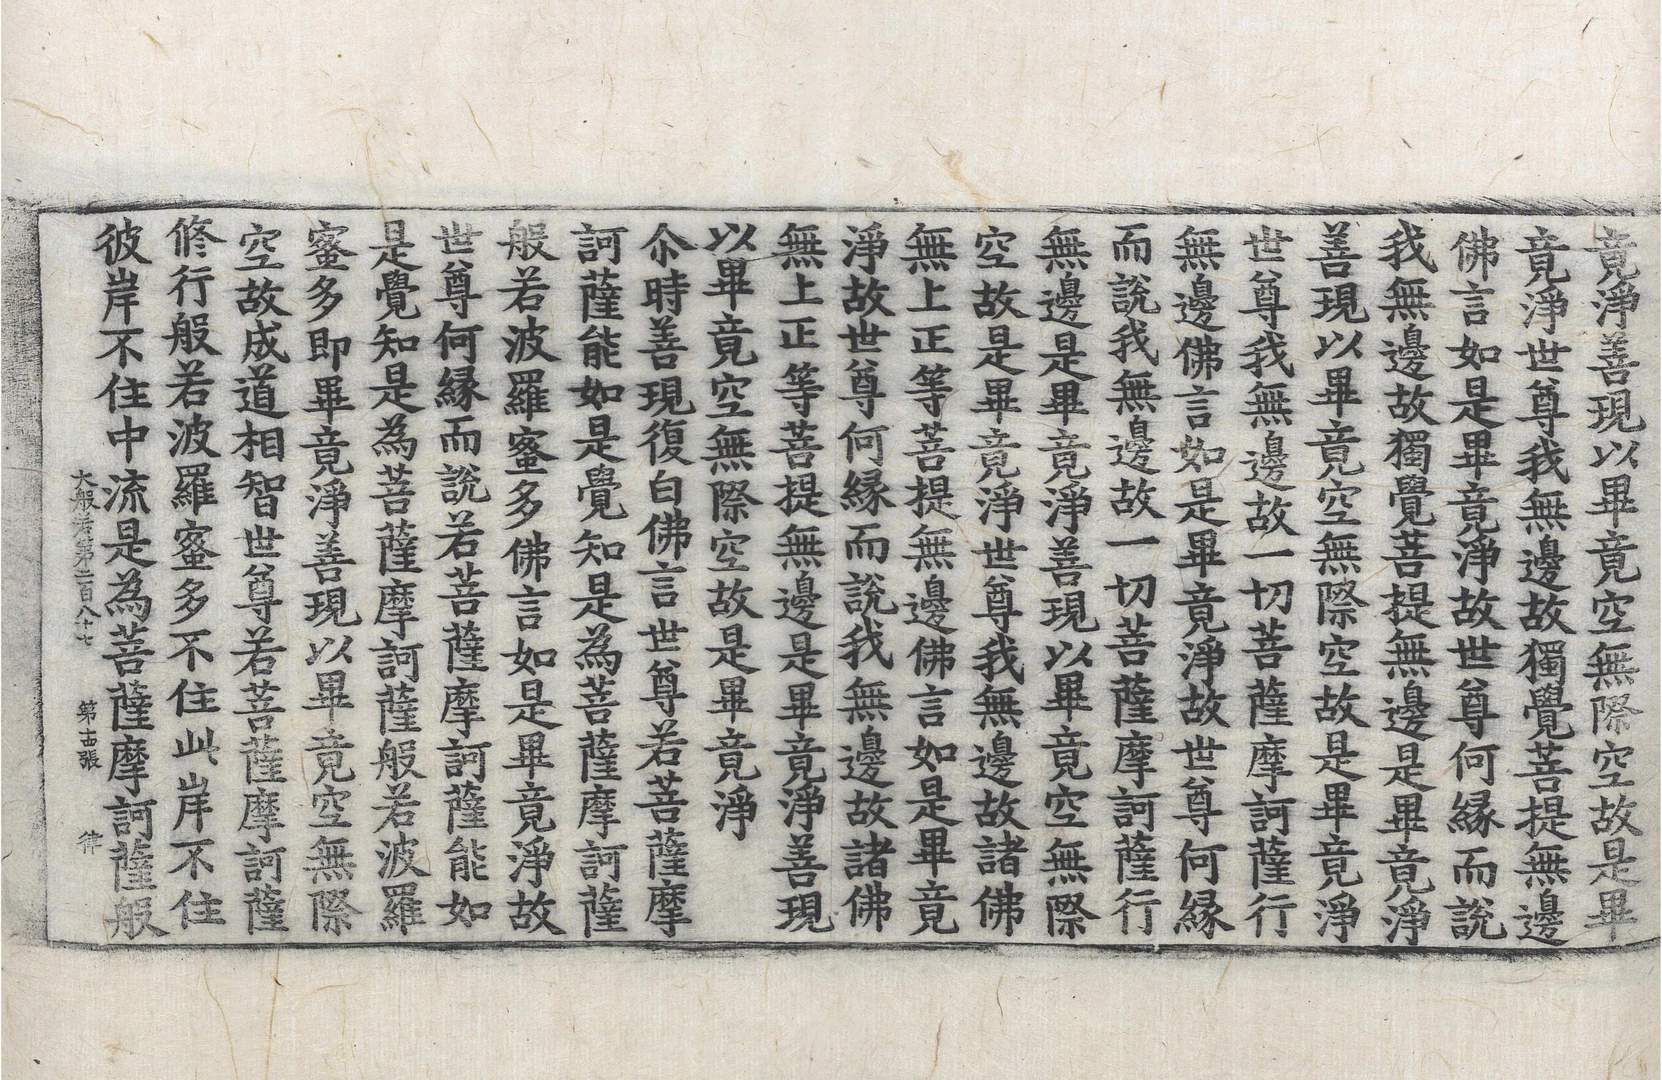 竟淨善現以畢竟空無際空故是畢
竟淨世尊我無邊故獨覺菩提無邊
佛言如是畢竟淨故世尊何緣而說
我無邊故獨覺菩提無邊是畢竟淨
善現以畢竟空無際空故是畢竟淨
世尊我無邊故一切菩薩摩訶薩行
無邊佛言如是畢竟淨故世尊何緣
而說我無邊故一切菩薩摩訶薩行
無邊是畢竟淨善現以畢竟空無際
空故是畢竟淨世尊我無邊故諸佛
無上正等菩提無邊佛言如是畢竟
淨故世尊何緣而說我無邊故諸佛
無上正等菩提無邊是畢竟淨善現
以畢竟空無際空故是畢竟淨
尒時善現復白佛言世尊若菩薩摩
訶薩能如是覺知是為菩薩摩訶薩
般若波羅蜜多佛言如是畢竟淨故
世尊何緣而說若菩薩摩訶薩能如
是覺知是為菩薩摩訶薩般若波羅
蜜多即畢竟淨善現以畢竟空無際
空故成道相智世尊若菩薩摩訶薩
修行般若波羅蜜多不住此岸不住
彼岸不住中流是為菩薩摩訶薩般
大般若第二百八十七 第十四張 律